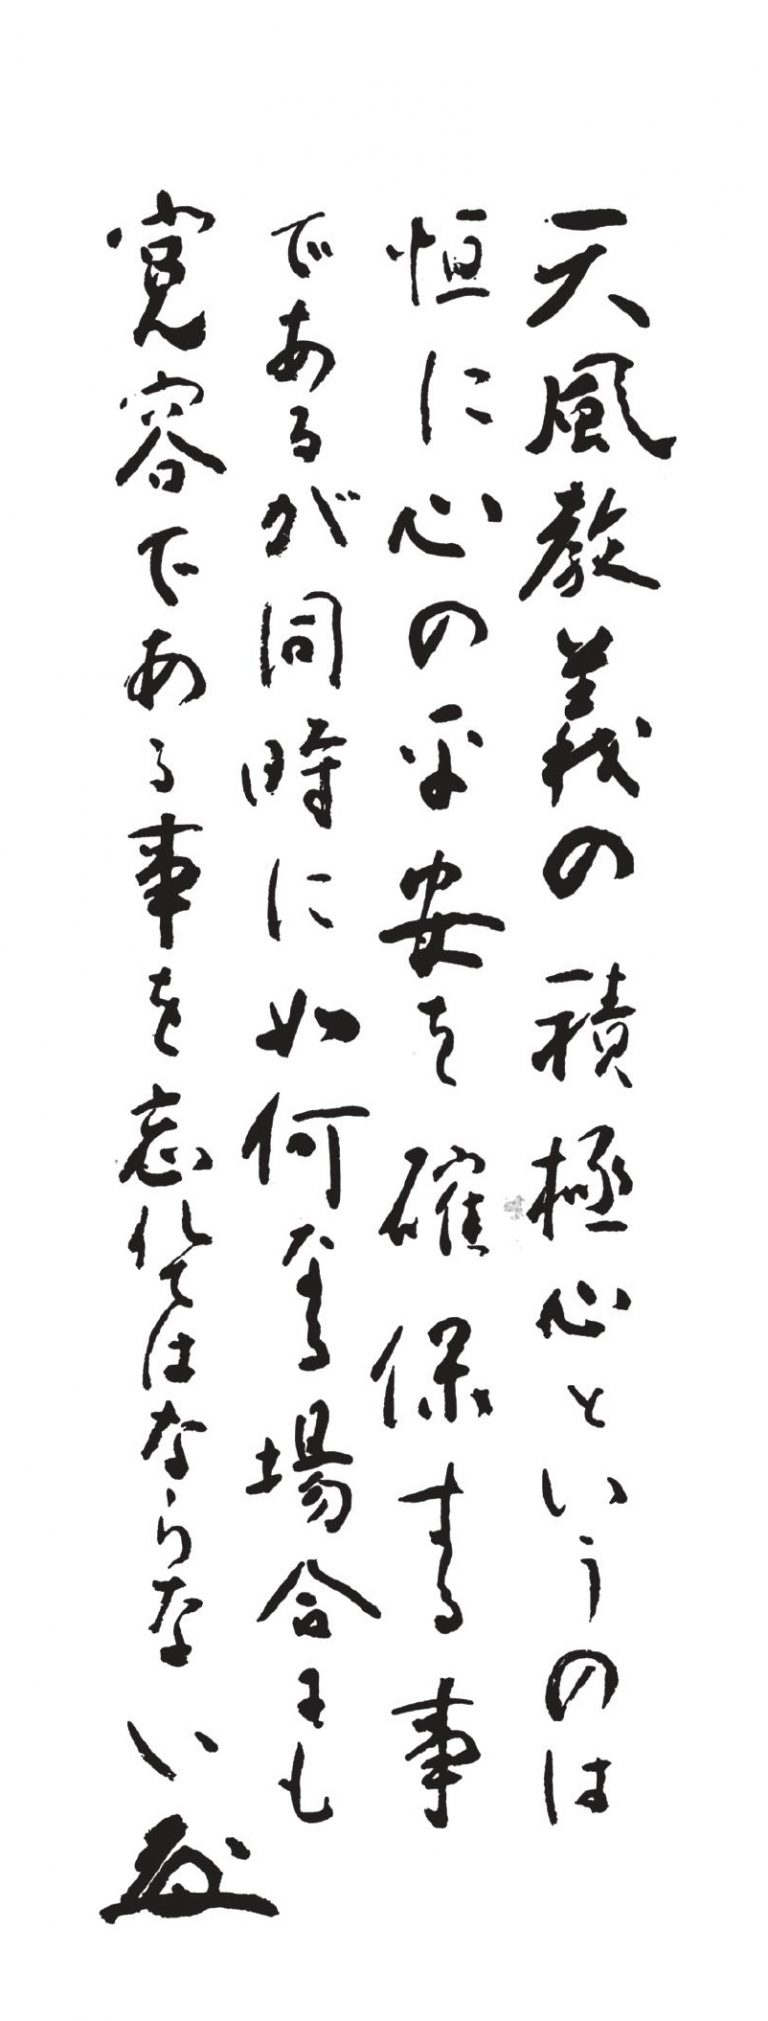 天風教義の積極心というのは
恒に心の平安を確保する事
であるが同時に如何なる場合にも
寛容である事を忘れてはならない